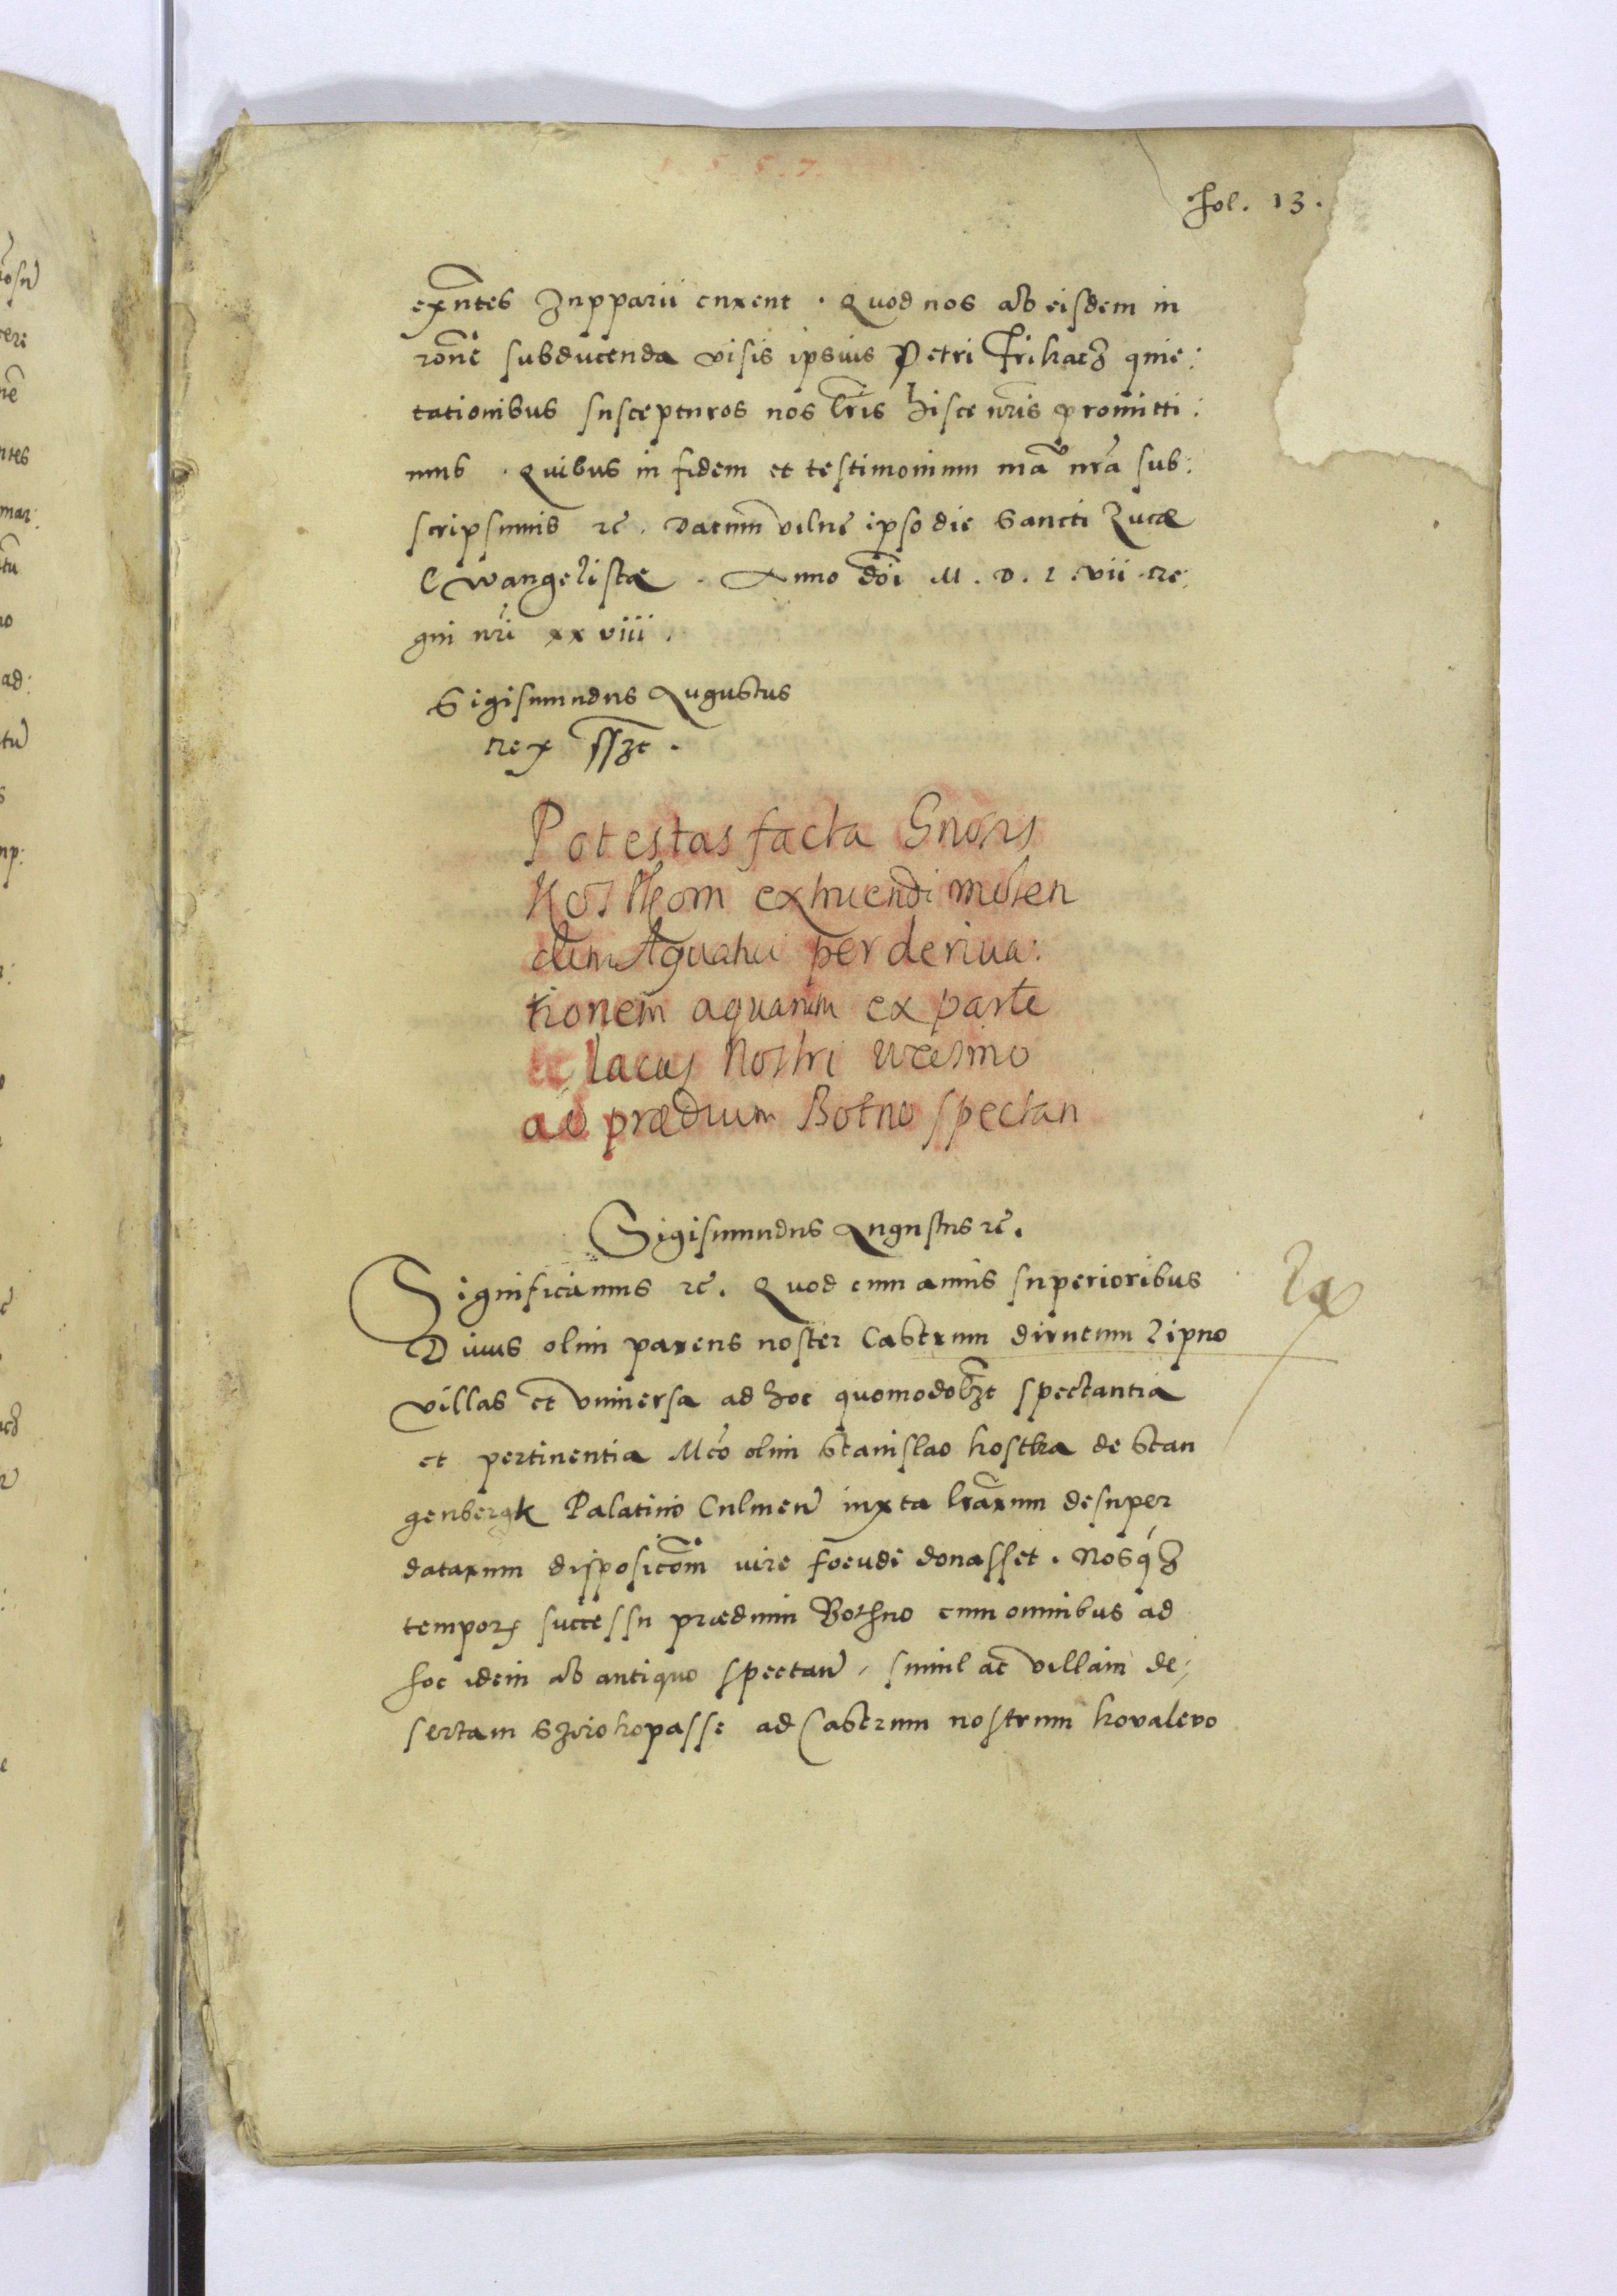 1.5.5.7.
fol. 13.
exñtes Zupparii curent. Quod nos ab eisdem in
rõne subducenda visis ipsius Petri Frikacz quie:
tationibus suscepturos nos lr̃is hisce nr̃is promitti:
mus. Quibus in fidem et testimonium mã nr̃a sub:
scripsimus rc̃. Datum vilnẽ ipso die Sancti Lucæ
Ewangelistæ. Anno dõi M. D. L. vii. re:
gni nr̃i xxviii.
Sigismundus Augustus
rex sszt.
Potestas facta Gnõsis
Kostkom extruendi molen
dum Aquatici per deriva:
tionem aquarum ex parte
lacus Nostri
ad prædium Botno spectan
Sigismundus Augustus rc̃.
Significamus rc̃. Quod cum annis superioribus
Divus olim parens noster Castrum dirutum Lipno
villas et vniversa ad hoc quomodolzt spectantia
et pertinentia Mco olim Stanislao kostka de Stan
genbergk Palatino Culmen iuxta lr̃arum desuper
datarum disposicõm iure foeudi donasset. Nosq3
tempor successu prædium Bothno cum omnibus ad
hoc idem ab antiquo spectan, simul ac villam de:
sertam Szirokopasse ad Castrum nostrum kovalevo